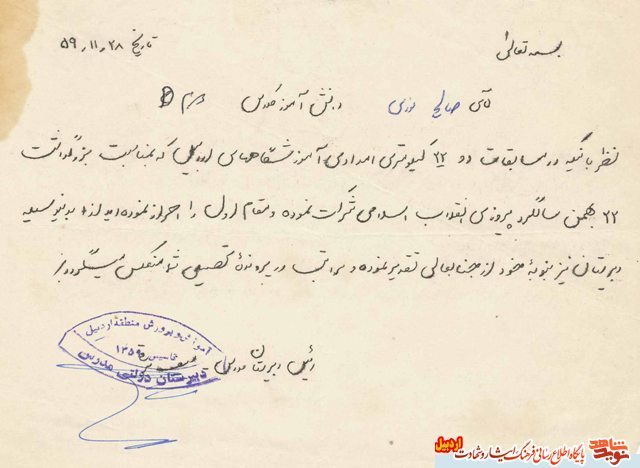 بسمه تعالی
تاریخ ۵۹،۱۱،۲۸
آقای صالح نوری دانش آموز کلاس
نظر باینکه در مسابقات دو ۲۲ کیلومتری امدادی آموزشگاههای اردبیل که بمناسبت بزرگداشت
۲۲ بهمن سالگرد پیروزی انقلاب اسلامی شرکت نموده و مقام اول را احراز نموده اید لذا بدینوسیله
دبیرستان نیز بنوبهٔ خود از جنابعالی تقدیر نموده و مراتب در پروندهٔ تحصیلی شما منعکس میگردد
رئیس دبیرستان مدرس
آموزش و پرورش منطقهٔ اردبیل
دبیرستان دولتی مدرس
نوید شاهد
پایگاه اطلاع رسانی فرهنگ ایثار و شهادت اردبیل